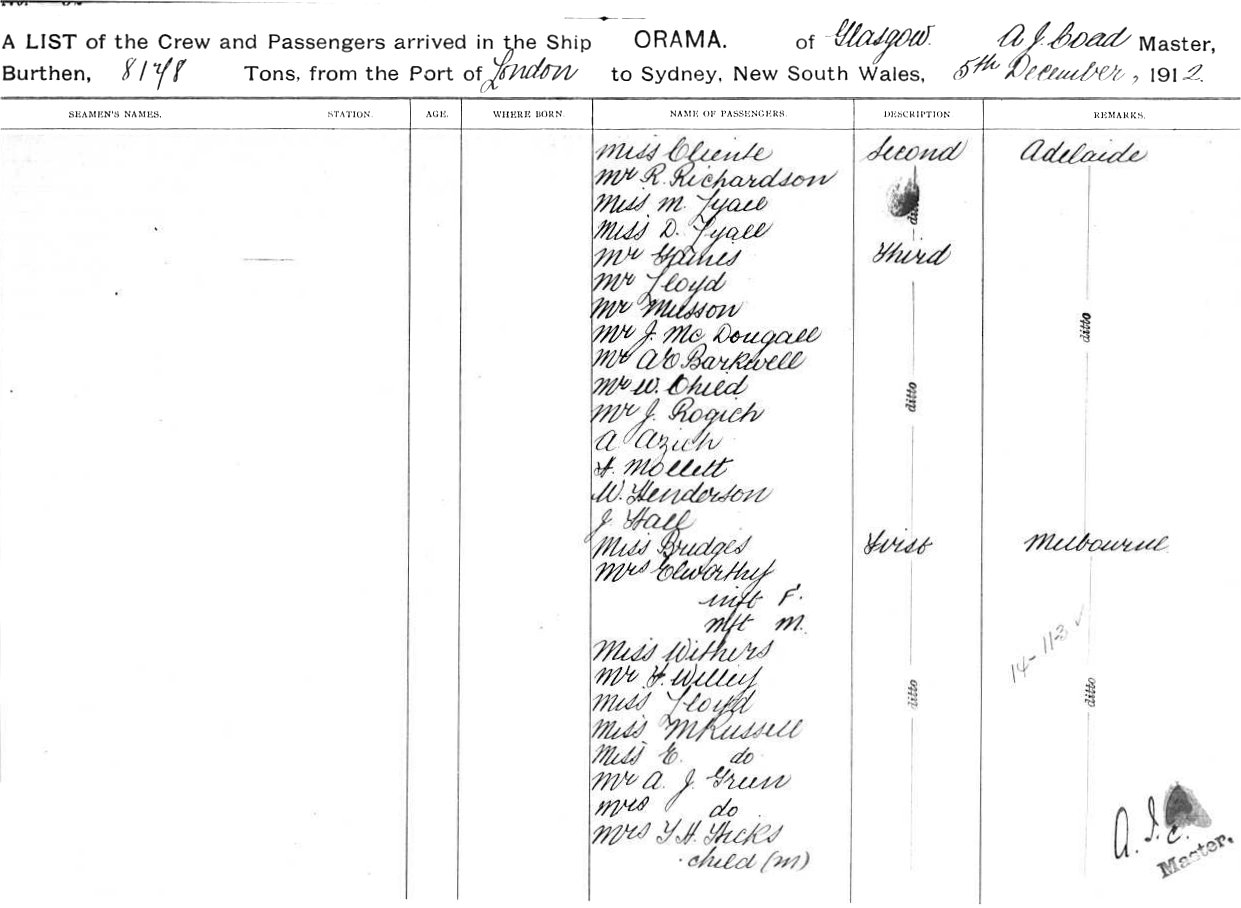 A LIST of the Crew and Passengers arrived in the Ship ORAMA. of Glasgow. A J. Coad Master,
Burthen, 8178 Tons, from the Port of London to Sydney, New South Wales, 5th December, 1912.
SEAMEN'S NAMES. STATION. AGE. WHERE BORN. NAME OF PASSENGERS. DESCRIPTION REMARKS.
Miss Second Adelaide
Mr R. Richardson
Miss M. Lyall
Miss D. Lyall ditto
Mr Games Third
Mr Lloyd
Mr Musson
Mr J. Mc Dougall ditto
Mr A E Barkwell
Mr W. Child ditto
Mr J. Rogich
A Azich
H. Mollett
W. Henderson
J. Hall
Miss Bridges First Melbourne
Mrs Elworthy
inft F.
inft M.
Miss Withers 14-11-3
Mr H. Willey ditto ditto
Miss Lloyd
Miss M Russell
Miss E. do
Mr A. J. Green
Mrs do
Mrs T H. Hicks A. J. C.
child (m) Master.